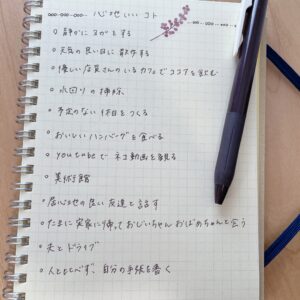 心地いいコト
静かにヨガをする
天気の良い日に散歩する
優しい店員さんのいるカフェでココアを飲む
水回りの掃除
予定のない休日をつくる
おいしいハンバーグを食べる
youtubeでネコ動画を観る
美術館
居心地の良い友達と話す
たまに実家に帰っておじいちゃんおばあちゃんと会う
夫とドライブ
人とくらべず、自分の手帳を書く